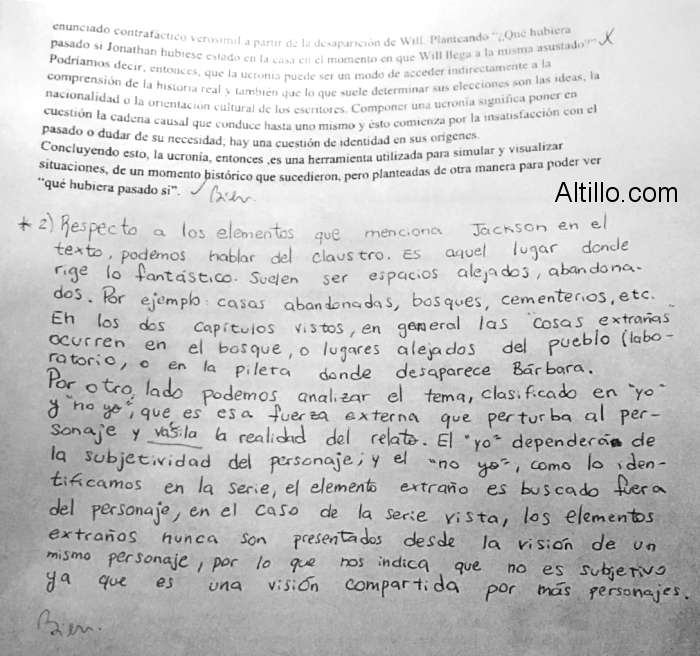 enunciado contrafáctico verosímil a partir de la desaparición de Will. Planteando "¿Qué hubiera
pasado si Jonathan hubiese estado en la casa en el momento en que Will llega a la misma asustado?" X
Podríamos decir, entonces, que la ucronía puede ser un modo de acceder indirectamente a la
comprensión de la historia real y también que lo que suele determinar sus elecciones son las ideas, la
nacionalidad o la orientación cultural de los escritores. Componer una ucronía significa poner en
cuestión la cadena causal que conduce hasta uno mismo y ésto comienza por la insatisfacción con el
pasado o dudar de su necesidad, hay una cuestión de identidad en sus orígenes.
Concluyendo esto, la ucronía, entonces ,es una herramienta utilizada para simular y visualizar
situaciones, de un momento histórico que sucedieron, pero planteadas de otra manera para poder ver
"qué hubiera pasado si". ✓ Bien.
Altillo.com
* 2) Respecto a los elementos que menciona Jackson en el
texto, podemos hablar del claustro. Es aquel lugar donde
rige lo fantástico. Suelen ser espacios alejados, abandona-
dos. Por ejemplo: casas abandonadas, bosques, cementerios, etc.
En los dos capítulos vistos, en general las "cosas extrañas"
ocurren en el bosque, o lugares alejados del pueblo (labo-
ratorio, o en la pileta donde desaparece Bárbara.
Por otro lado podemos analizar el tema, clasificado en "yo"
y "no yo", que es esa fuerza externa que perturba al per-
sonaje y vasila la realidad del relato. El "yo" dependerá de
la subjetividad del personaje; y el "no yo", como lo iden-
tificamos en la serie, el elemento extraño es buscado fuera
del personaje, en el caso de la serie vista, los elementos
extraños nunca son presentados desde la visión de un
mismo personaje, por lo que nos indica que no es subjetivo
ya que es una visión compartida por más personajes.
Bien.